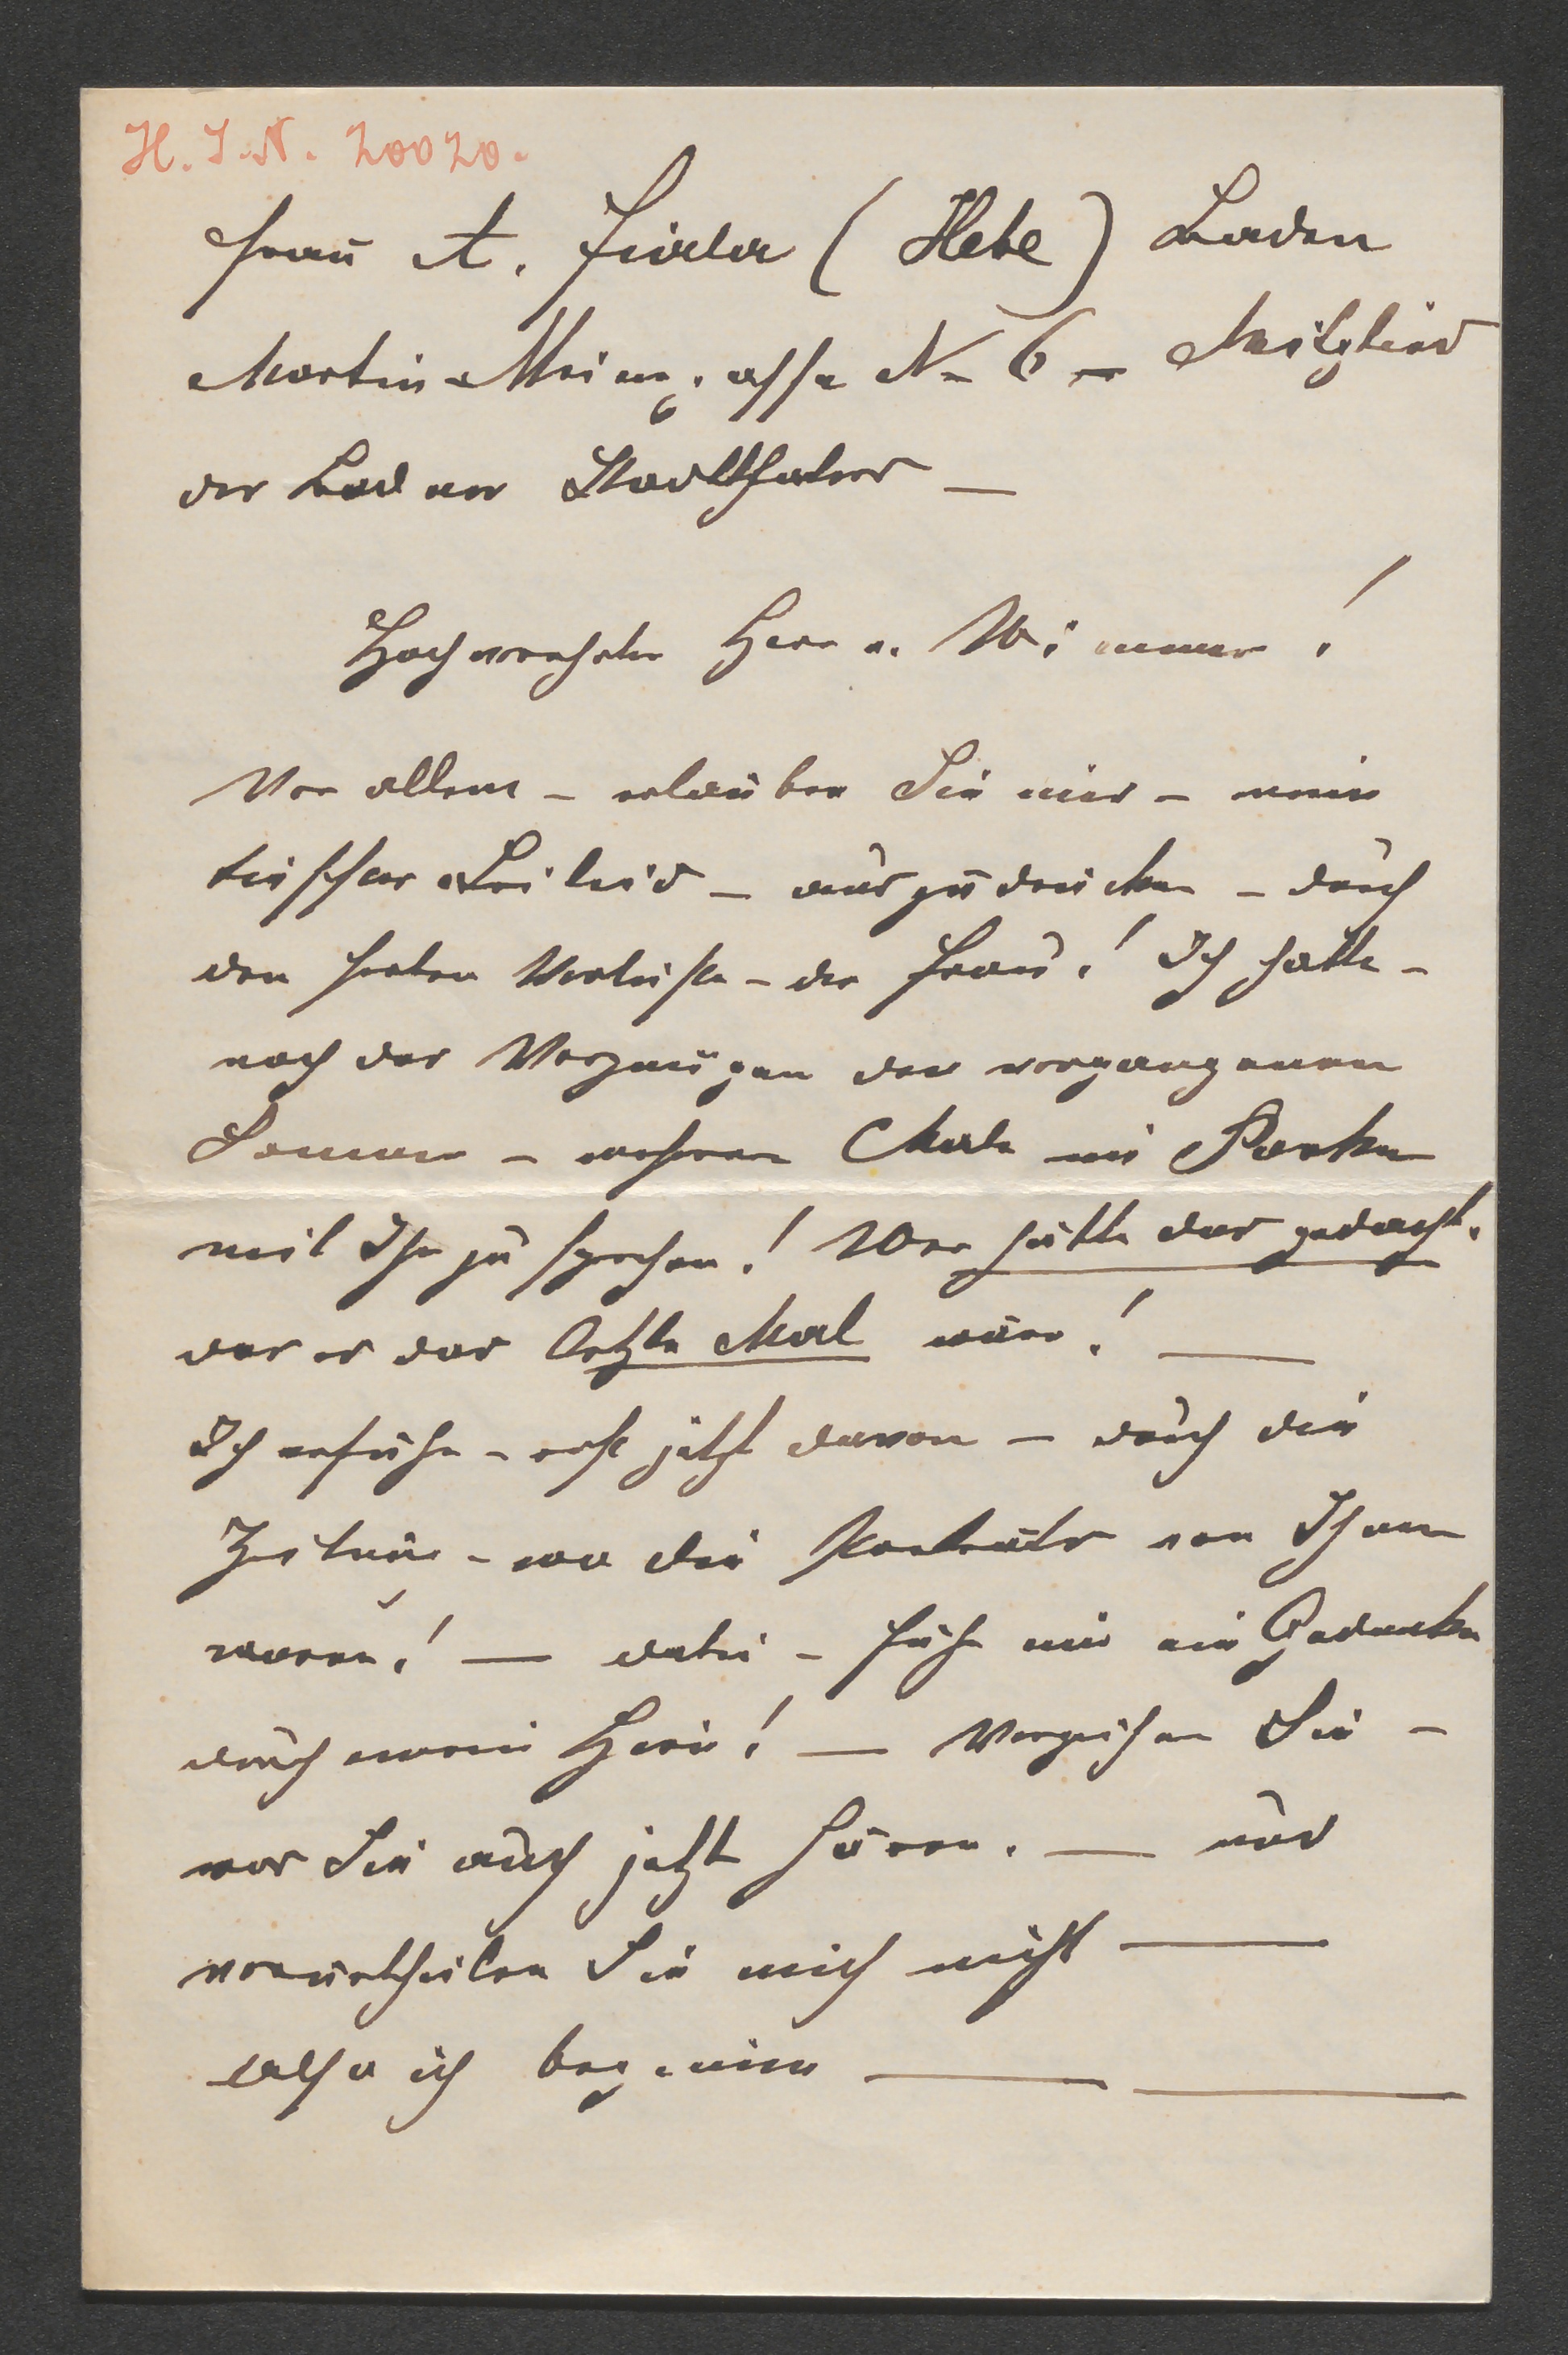 H. I. N. 20020.
Frau A. Fiala (Hebe) Baden
Martin - gasse N- 6 - Mitglied
der Badner Stadttheater —
Hochverehrter Herr v. Wimmer!
Vor allem - erlauben Sie mir - mein
tiefstes Beileid - auszudrücken - durch
den herben Verluste - der Frau! Ich hatte -
noch das Vergnügen den vergangenen
Sommer - mehrere Male im Parke
mit Ihr zu sprechen! Wer hätte das gedacht.
das es das letzte Mal wäre! —
Ich erfuhr - erst jetzt davon - durch die
Zeitung - wo die Portraits von Ihnen
waren! — dabei - fuhr mir ein Gedanke
durch mein Hirn! — Verzeihen Sie -
was Sie auch jetzt hören. — und
verurtheilen Sie mich nicht —
also ich beginne — —